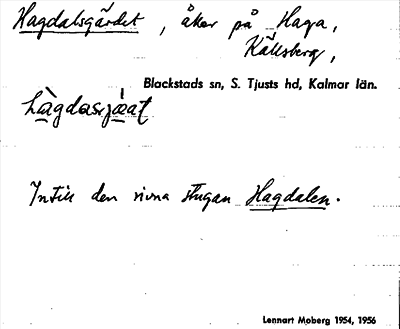 Hagdalsgärdet, åker på Haga,
Källsberg,
Blackstads sn, S. Tjusts hd, Kalmar län.
Intill den rivna stugan Hagdalen.
Lennart Moberg 1954, 1956